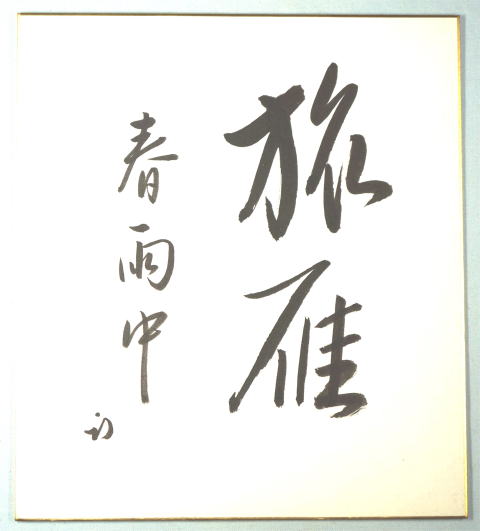 旅雁
春雨中